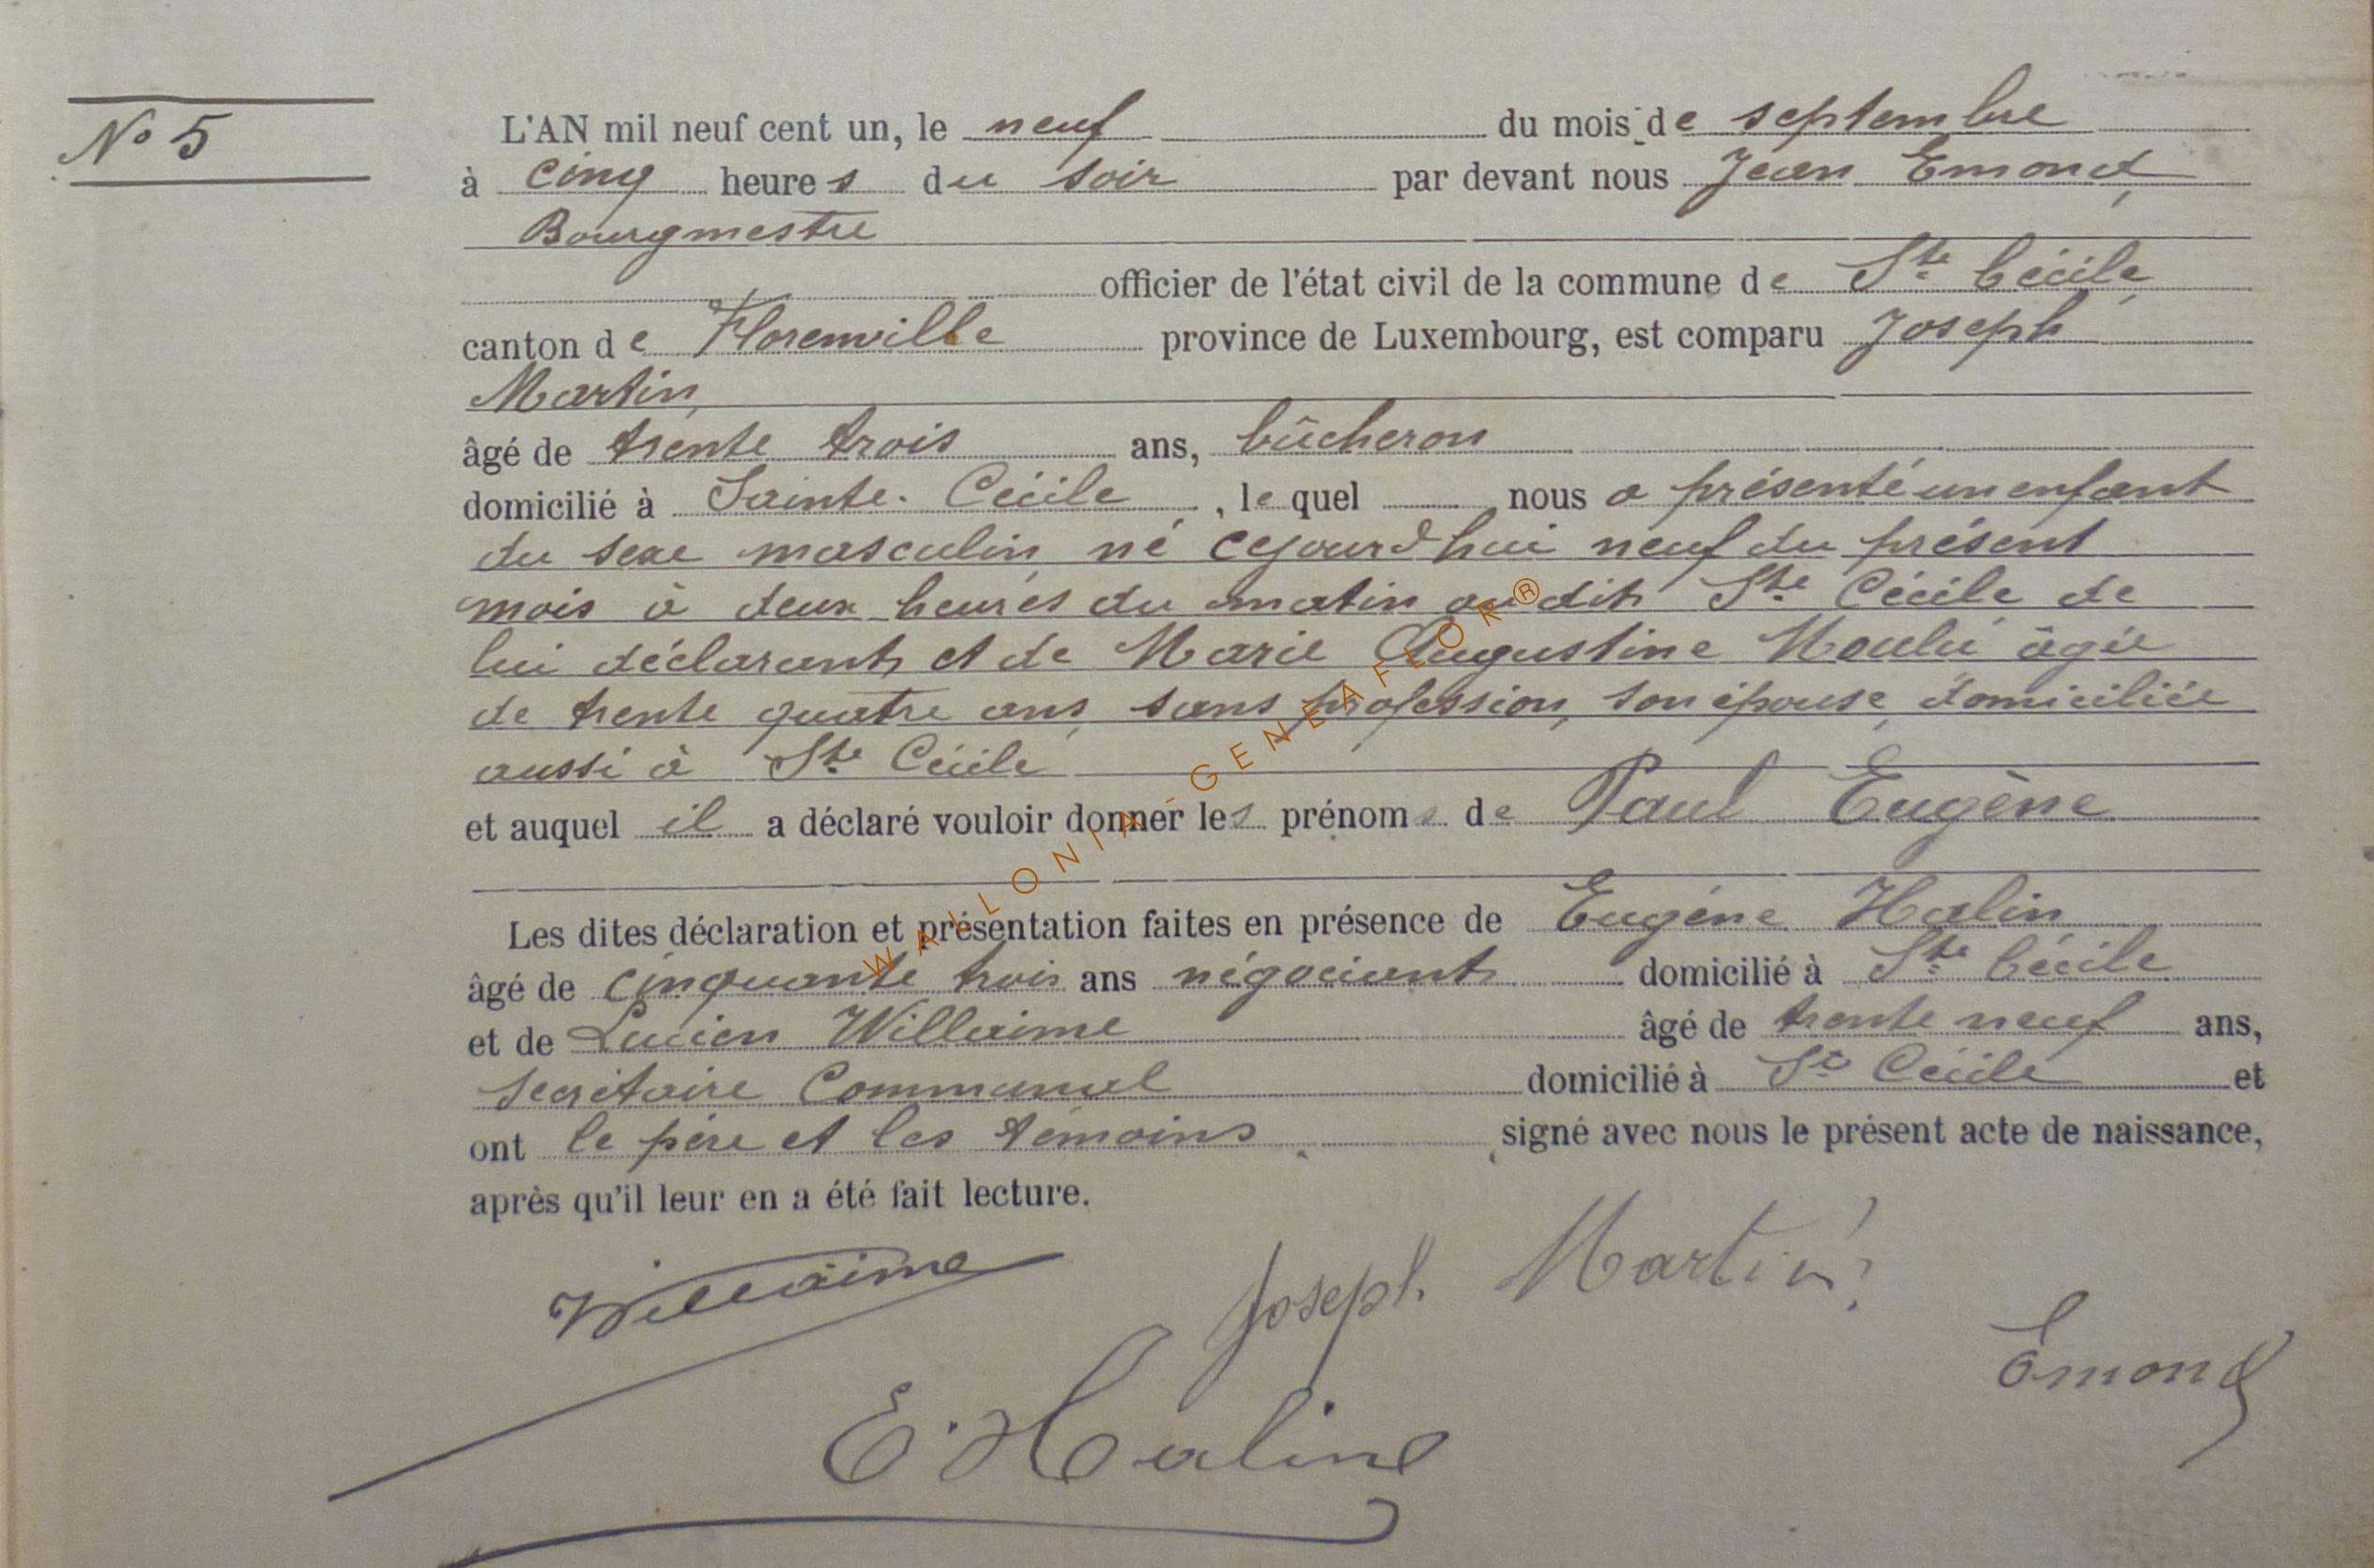 N° 5
L'AN mil neuf cent un, le neuf du mois de septembre
à cinq heures du soir par devant nous Jean Emond,
Bourgmestre
officier de l'état civil de la commune de Ste Cécile,
canton de Florenville province de Luxembourg, est comparu Joseph
Martin,
âgé de trente trois ans, bûcheron
domicilié à Sainte-Cécile, lequel nous a présenté un enfant
du sexe masculin, né cejourd'hui neuf du présent
mois à deux heures du matin au dit Ste Cécile de
lui déclarant, et de Marie Augustine Moulu âgée
de trente quatre ans, sans profession, son épouse, domiciliée
aussi à Ste Cécile
et auquel il a déclaré vouloir donner les prénoms de Paul Eugène
Les dites déclaration et présentation faites en présence de Eugène Halin
âgé de cinquante trois ans négociant domicilié à Ste Cécile
et de Lucien Willaime âgé de trente neuf ans,
secrétaire Communal domicilié à Ste Cécile et
ont le père et les témoins signé avec nous le présent acte de naissance,
après qu'il leur en a été fait lecture.
Willaime
Joseph Martin
Emond
E. Halin
WALLONIA-GENEAFLOR®